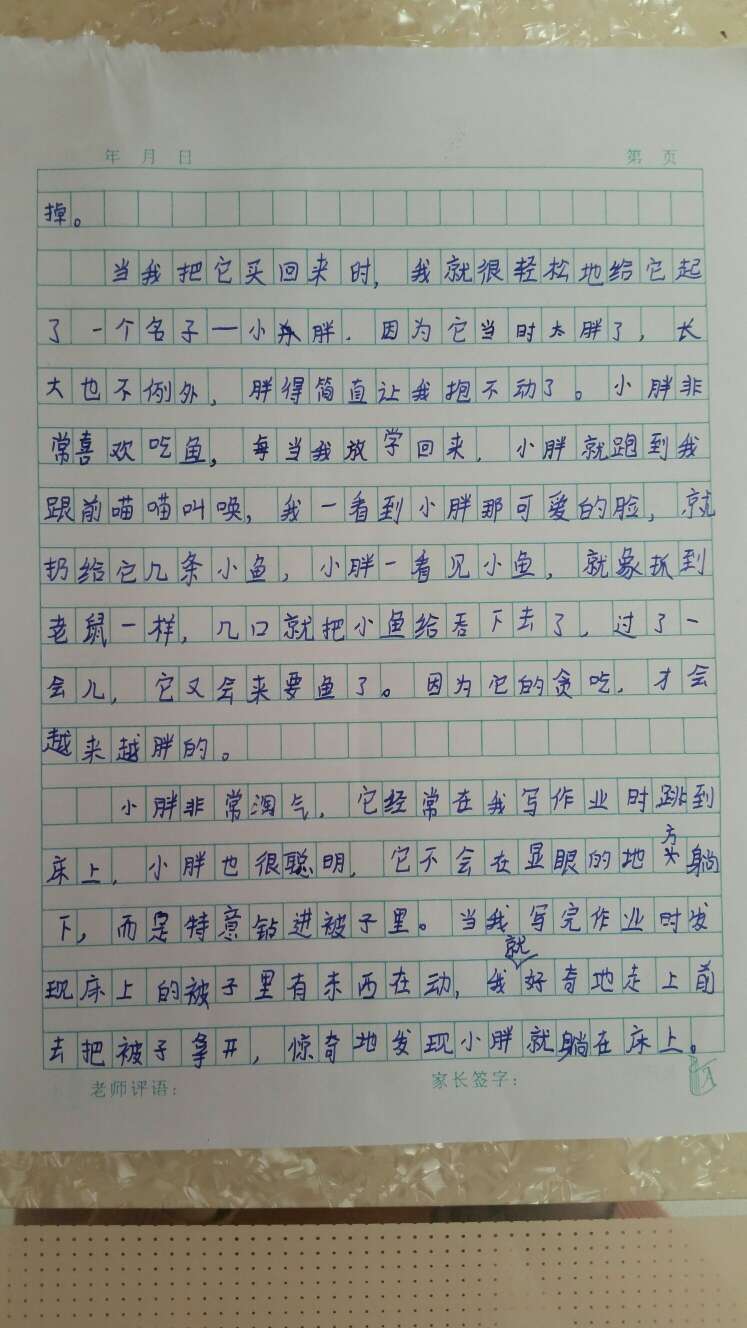 年 月 日 第 页
掉。
当我把它买回来时，我就很轻松地给它起
了一个名子一小胖．因为它当时太胖了，长
大也不例外，胖得简直让我抱不动了。小胖非
常喜欢吃鱼，每当我放学回来，小胖就跑到我
跟前喵喵叫唤，我一看到小胖那可爱的脸，就
扔给它几条小鱼，小胖一看见小鱼，就象抓到
老鼠一样，几口就把小鱼给吞下去了，过了一
会儿，它又会来要鱼了。因为它的贪吃，才会
越来越胖的。
小胖非常淘气，它经常在我写作业时跳到
床上，小胖也很聪明，它不会在显眼的地方躺
下，而是特意钻进被子里。当我写完作业时发
现床上的被子里有东西在动，我就好奇地走上前
去把被子拿开，惊奇地发现小胖就躺在床上。
老师评语： 家长签字：